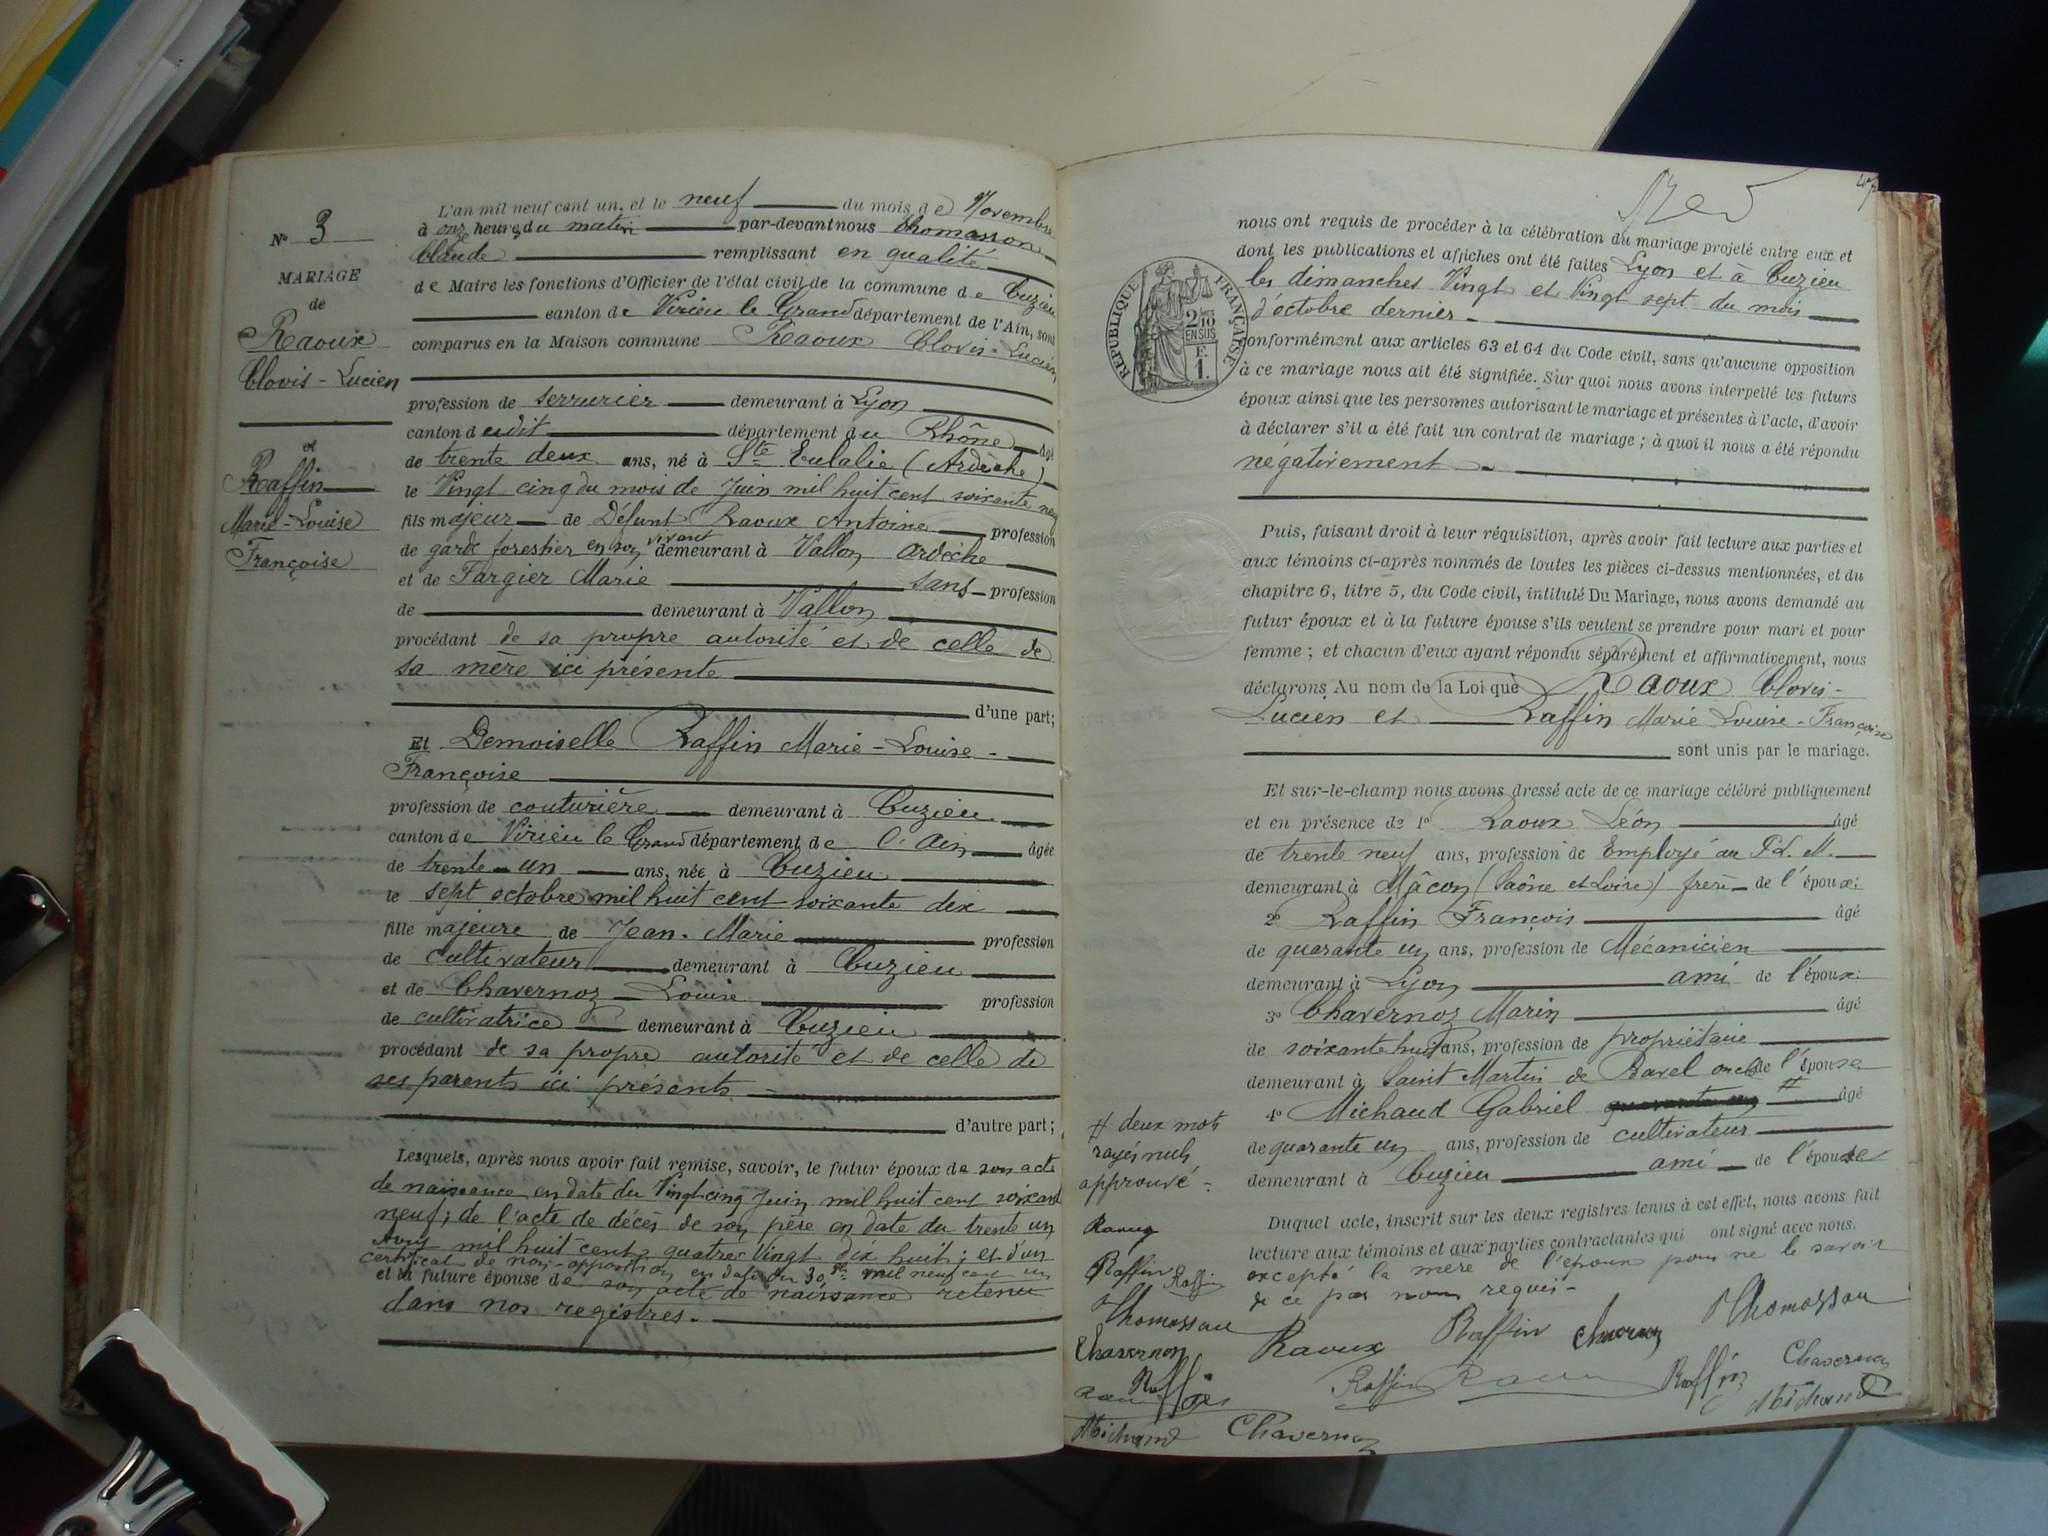 N° 3
MARIAGE
de
Raoux
Clovis - Lucien
et
Raffin
Marie - Louise
Françoise
L'an mil neuf cent un, et le neuf du mois de Novembre
à onze heures du matin par-devant nous Thomasson
Claude remplissant en qualité
de Maire les fonctions d'Officier de l'état civil de la commune de Cuzieu
canton de Virieu le Grand département de l'Ain, sont
comparus en la Maison commune Raoux Clovis - Lucien
profession de serrurier demeurant à Lyon
canton dudit département du Rhône âgé
de trente deux ans, né à Ste Eulalie (Ardèche)
le Vingt cinq du mois de Juin mil huit cent soixante neuf
fils majeur de Défunt Raoux Antoine profession
de garde forestier en son vivant demeurant à Vallon Ardèche
et de Fargier Marie sans profession
de demeurant à Vallon
procédant de sa propre autorité et de celle de
sa mère ici présente
d'une part;
Et Demoiselle Raffin Marie - Louise -
Françoise
profession de couturière demeurant à Cuzieu
canton de Virieu le Grand département de l'Ain âgée
de trente - un ans, née à Cuzieu
le sept octobre mil huit cent soixante dix
fille majeure de Jean - Marie profession
de cultivateur demeurant à Cuzieu
et de Chavernoz Louise profession
de cultivatrice demeurant à Cuzieu
procédant de sa propre autorité et de celle de
ses parents ici présents
d'autre part;
Lesquels, après nous avoir fait remise, savoir, le futur époux de son acte
de naissance en date du Vingt cinq Juin mil huit cent soixante
neuf; de l'acte de décès de son père en date du trente un
mil huit cent quatre Vingt dix huit; et d'un
certificat de non-opposition en date du 30 mil neuf cent un
et la future épouse de son acte de naissance retenu
dans nos registres.
RÉPUBLIQUE FRANÇAISE
2/10
EN SUS
F.
1.
nous ont requis de procéder à la célébration du mariage projeté entre eux et
dont les publications et affiches ont été faites Lyon et à Cuzieu
les dimanches Vingt et Vingt sept du mois
d'octobre dernier
conformément aux articles 63 et 64 du Code civil, sans qu'aucune opposition
à ce mariage nous ait été signifiée. Sur quoi nous avons interpellé les futurs
époux ainsi que les personnes autorisant le mariage et présentes à l'acte, d'avoir
à déclarer s'il a été fait un contrat de mariage ; à quoi il nous a été répondu
négativement
Puis, faisant droit à leur réquisition, après avoir fait lecture aux parties et
aux témoins ci-après nommés de toutes les pièces ci-dessus mentionnées, et du
chapitre 6, titre 5, du Code civil, intitulé Du Mariage, nous avons demandé au
futur époux et à la future épouse s'ils veulent se prendre pour mari et pour
femme ; et chacun d'eux ayant répondu séparément et affirmativement, nous
déclarons Au nom de la Loi que Raoux Clovis -
Lucien et Raffin Marie Louise - Françoise
sont unis par le mariage.
Et sur-le-champ nous avons dressé acte de ce mariage célébré publiquement
et en présence de 1° Raoux Léon âgé
de trente neuf ans, profession de Employé au P.L.M.
demeurant à Mâcon (Saône et Loire) frère de l'époux;
2° Raffin François âgé
de quarante un ans, profession de Mécanicien
demeurant à Lyon ami de l'époux;
3° Chavernoz Marin âgé
de soixante huit ans, profession de propriétaire
demeurant à Saint Martin de Bavel oncle de l'épouse
4° Michaud Gabriel # âgé
de quarante un ans, profession de cultivateur
demeurant à Cuzieu ami de l'épouse
Duquel acte, inscrit sur les deux registres tenus à cet effet, nous avons fait
lecture aux témoins et aux parties contractantes qui ont signé avec nous.
excepté la mère de l'époux pour ne le savoir
de ce par nous requis -
# deux mots
rayés nuls
approuvé -
Raoux
Raffin Raffin
Thomasson
Chavernoz
Raffin
Michaud
Raoux Raffin Chavernoz Thomasson
Raffin Raoux Raffin Chavernoz
Michaud
Chavernoz